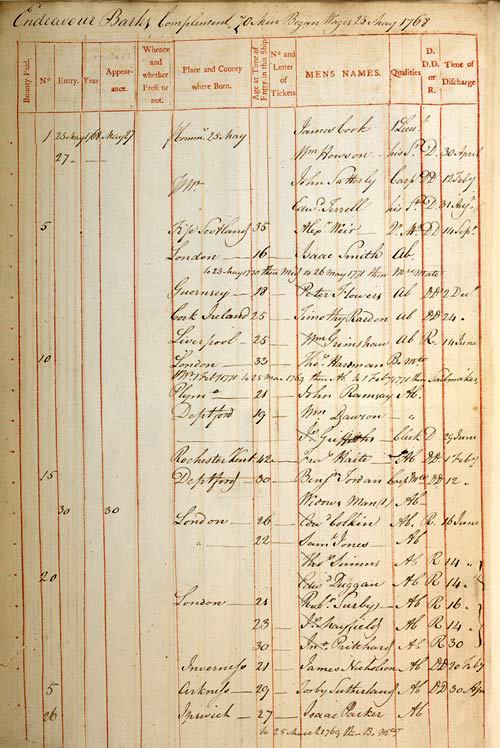 Endeavour Barks Complement 70 when Began Wages 25 May 1768
Bounty Paid. No Entry. Year Appearance. Whence and whether Prest or not. Place and County where Born. Age at Time of Entry in this Ship No and Letter of Tickets. MENS NAMES. Qualities D. D.D. or R. Time of Discharge
1 25 May 1768 May 27 Commn. 25 May James Cook 1 Lieut.
27 - - Wm Howson his St. D. 30 April
Wm John Satterly Carpr DD 12 Feby
Edwd Terrell his St. D. 31 Augt.
5 Scotland 35 Alexr Weir Qr Mr DD 14 Sept.
London - 16 - Isaac Smith Ab.
to 23 May 1770 then Mid to 26 May 1771 then Mrs Mate
Guernsey - 18 - Peter Flowers Ab DD 2 Decr
Cork Ireland 25 - Timothy Rardon Ab DD 24 -
Liverpool - 25 - Wm Grimshaw Ab R. 14 June
10 London - 33 - Thos. Hardman B. Mte
1 Feby 1771 then Sailmaker
Plymo 21 - John Ramsay Ab.
Deptford 19 - Wm Dawson - "
Jno Griffiths - Clerk D 29 June
Rochester Kent 42 - Jno. Waite Ab DD 1 Feby
15 Deptford - 30 - Benjn Jordan Carps Mte DD 12 "
Widows Man Ab
30 30 London - 26 - Edwd Colkin Ab. R. 16 June
" - 22 - Saml Jones Ab
Thos Simms Ab R 14 "
20 Edwd Duggan Ab R 14 "
London - 21 Robt Surby - Ab R 16 "
23 Jas Mayfield Ab R 14
30 Jno. Pritchard Ab R 30
Inverness 21 - James Nicholson Ab DD 20 Feby
5 Orkness - 29 - Forby Sutherland Ab DD 30 Apr
26 Ipswich - 27 - Isaac Parker Ab
to 25 March 1769 then B. Mte